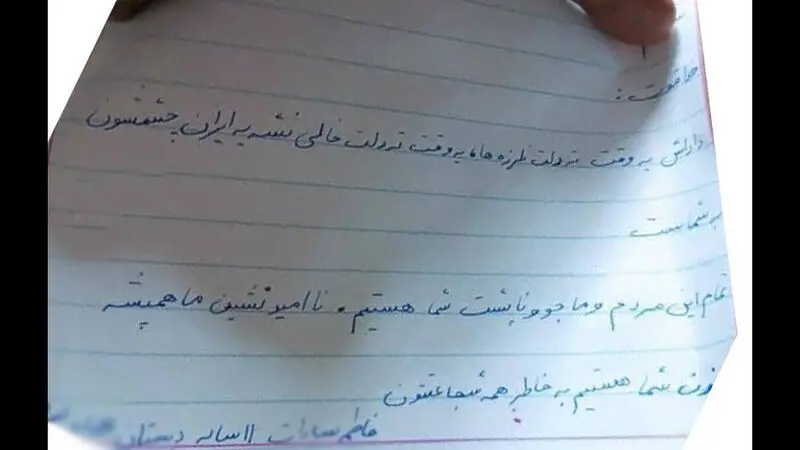 خدا قوت:
داداش یه وقت ته دلت نلرزه ها، یه وقت ته دلت خالی نشه یه ایران چشمشون
به شماست
تمام این مردم و ما جوونا پشت شما هستیم. ناامید نشین ما همیشه
شما هستیم به خاطر همه شجاعتتون
فاطمه سادات ۱۱ ساله دبستان